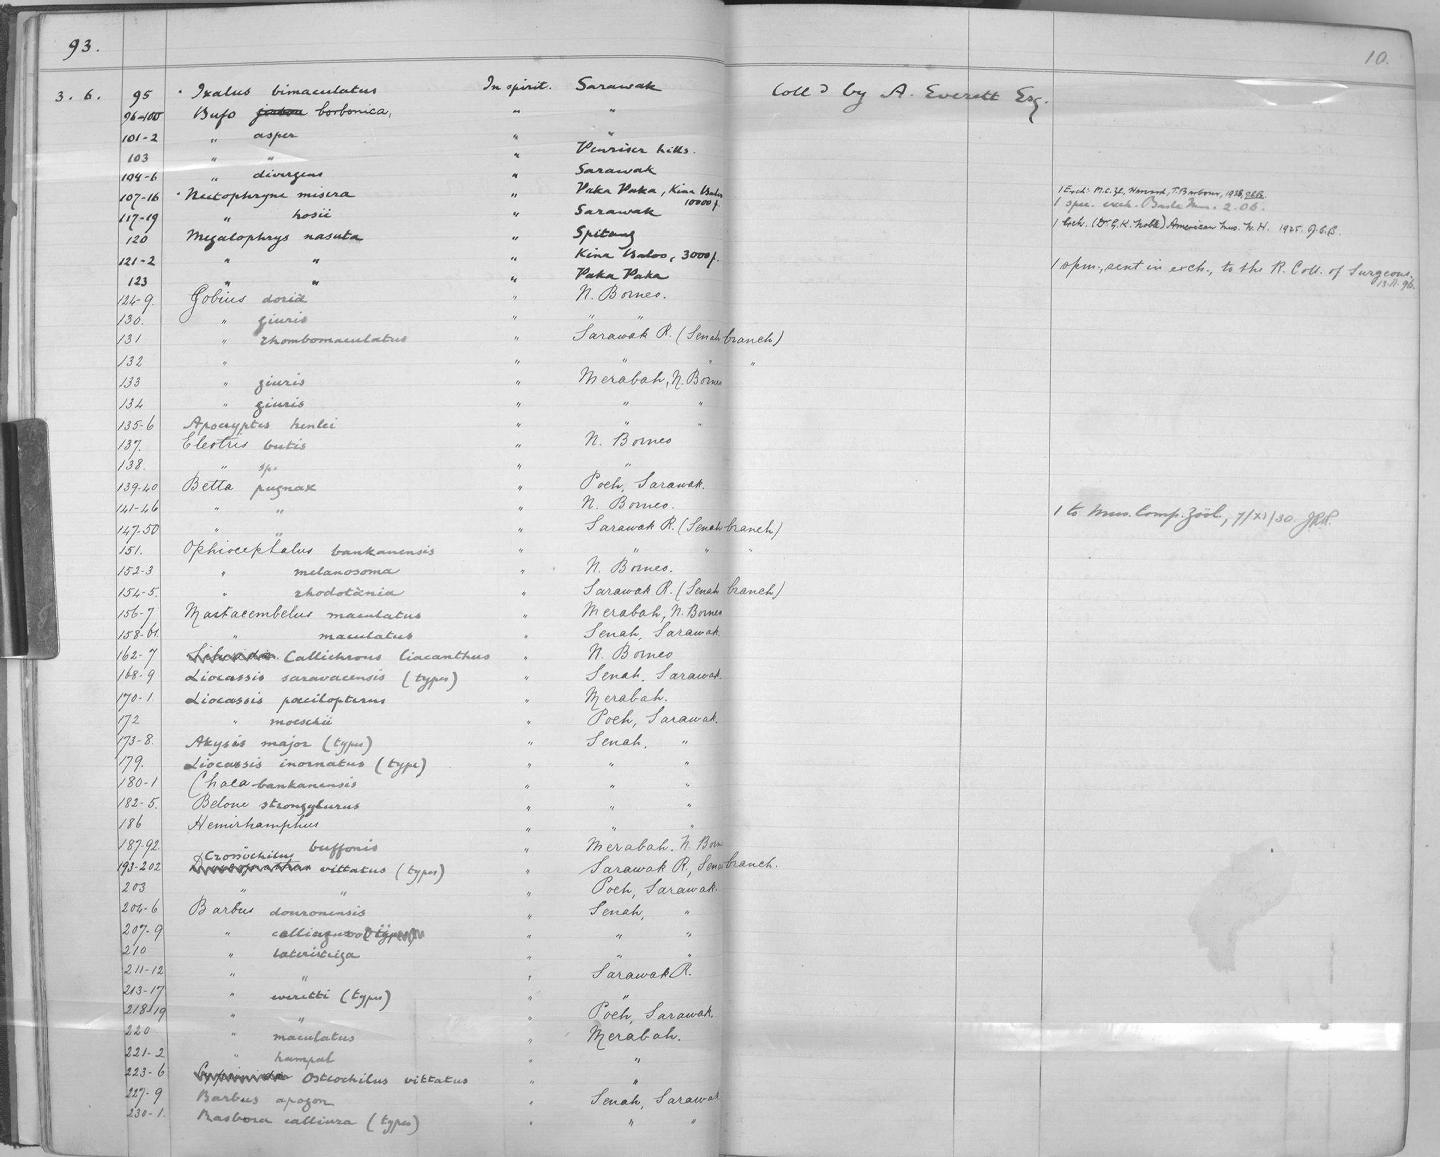 93.
10.
3. 6. 95 Ixalus bimaculatus In spirit. Sarawak Coll^d by A. Everett Esq.
96-100 Bufo borbonica, " "
101-2 " asper " "
103 " " " Penrisen hills.
104-6 " divergens " Sarawak
107-16 Nectophryne misera " Paka Paka, Kina Balu 10000 f. 1 Exch: M.C.Z., Harvard, T. Barbour, 1938,
1 spec. exch. Basle Mus. 2.06.
117-19 " hosii " Sarawak 1 Exch. (Dr. G.K. Noble) American Mus. N.H. 1925.
120 Megalophrys nasuta " Spitang
121-2 " " " Kina Baloo, 3000 f.
123 " " " Paka Paka 1 spm., sent in exch., to the R. Coll. of Surgeons.
124-9. Gobius doriæ " N. Borneo.
130. " giuris " " "
131 " rhombomaculatus " Sarawak R. (Senah branch)
132 " " " " "
133 " giuris " Merabah, N. Borneo
134 " giuris " " "
135-6 Apocryptes henlei " " "
137. Eleotris butis " N. Borneo
138. " sp. " "
139-40 Betta pugnax " Poeh, Sarawak.
141-46 " " " N. Borneo. 1 to Mus. Comp. Zööl., 7/XI/30
147-50 " " " Sarawak R. (Senah branch)
151. Ophiocephalus bankanensis " " " "
152-3 " melanosoma " N. Borneo.
154-5. " rhodotænia " Sarawak R. (Senah branch)
156-7 Mastacembelus maculatus " Merabah, N. Borneo
158-61 " maculatus " Senah, Sarawak
162-7 Callichrous liacanthus " N. Borneo
168-9 Liocassis saravacensis (types) " Senah, Sarawak
170-1 Liocassis pœcilopterus " Merabah.
172 " moeschii " Poeh, Sarawak.
173-8. Akysis major (types) " Senah, "
179. Liocassis inornatus (type) " " "
180-1 Chaca bankanensis " " "
182-5. Belone strongylurus " " "
186 Hemirhamphus " " "
187-92 " buffonis " Merabah. N. Born
193-202 Crossochilus vittatus (types) " Sarawak R., Senah branch.
203 " " " Poeh, Sarawak.
204-6 Barbus douronensis " Senah, "
207-9 " " " "
210 " lateristriga " " "
211-12 " " " Sarawak R.
213-17 " everetti (types) " "
218-19 " " " Poeh, Sarawak.
220 " maculatus Merabah.
221-2 " hampal " "
223-6 Osteochilus vittatus " "
227-9 Barbus apogon " Senah, Sarawak
230-1. Rasbora calliura (types) " " "